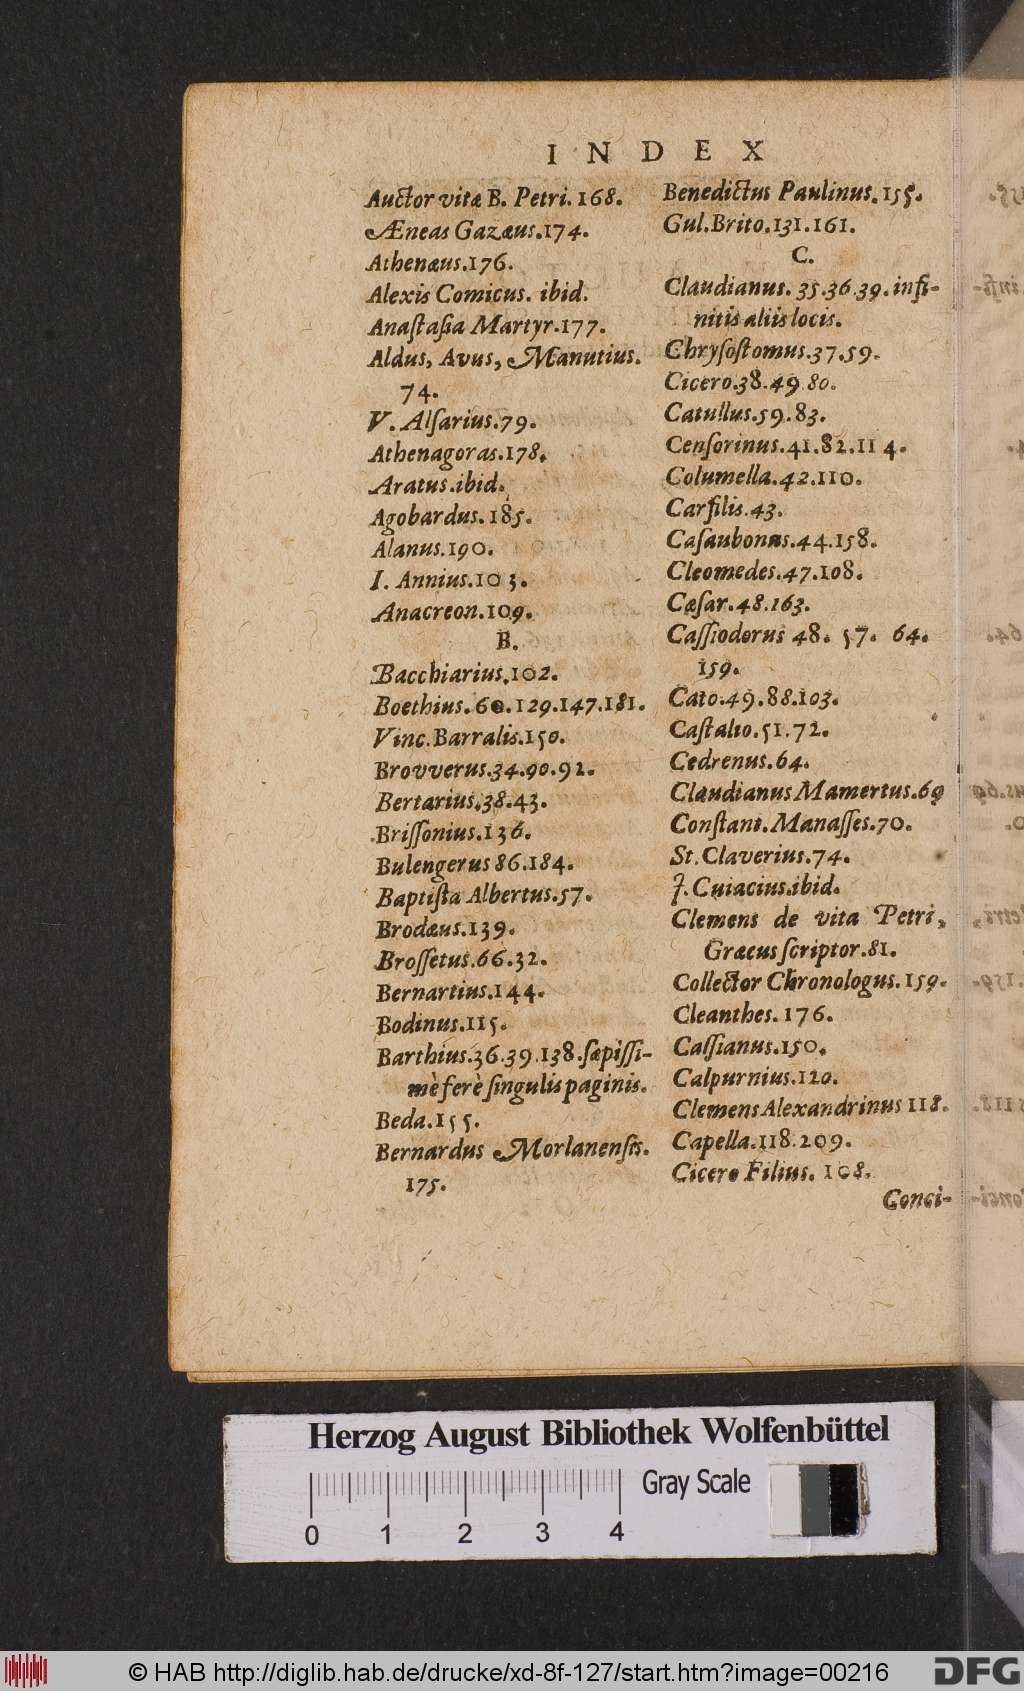 INDEX
Auctor vitæ B. Petri. 168.
Æneas Gazæus.174.
Athenæus.176.
Alexis Comicus. ibid.
Anaſtaſia Martyr.177.
Aldus, Avus, Manutius.
74.
V. Alſarius.79.
Athenagoras.178.
Aratus.ibid.
Agobardus.185.
Alanus.190.
I. Annius.103.
Anacreon.109.
B.
Bacchiarius.102.
Boethius.60.129.147.181.
Vinc.Barralis.150.
Brovverus.34.90.92.
Bertarius.38.43.
Briſſonius.136.
Bulengerus 86.184.
Baptiſta Albertus.57.
Brodæus.139.
Broſſetus.66.32.
Bernartius.144.
Bodinus.115.
Barthius.36.39.138.ſæpiſſi-
mè ferè ſingulis paginis.
Beda.155.
Bernardus Morlanenſis.
175.
Benedictus Paulinus.155.
Gul.Brito.131.161.
C.
Claudianus. 35.36.39.infi-
nitis aliis locis.
Chryſoſtomus.37.59.
Cicero.38.49.80.
Catullus.59.83.
Cenſorinus.41.82.114.
Columella.42.110.
Carfilis.43.
Caſaubonus.44.158.
Cleomedes.47.108.
Cæſar.48.163.
Caſſiodorus 48. 57. 64.
159.
Cato.49.88.103.
Caſtalio.51.72.
Cedrenus.64.
Claudianus Mamertus.69
Conſtant.Manaſſes.70.
St.Claverius.74.
J.Cuiacius.ibid.
Clemens de vita Petri,
Græcus ſcriptor.81.
Collector Chronologus.159.
Cleanthes.176.
Caſſianus.150.
Calpurnius.120.
Clemens Alexandrinus 118.
Capella.118.209.
Cicero Filius. 108.
Conci-
Herzog August Bibliothek Wolfenbüttel
Gray Scale
0 1 2 3 4
© HAB http://diglib.hab.de/drucke/xd-8f-127/start.htm?image=00216
DFG